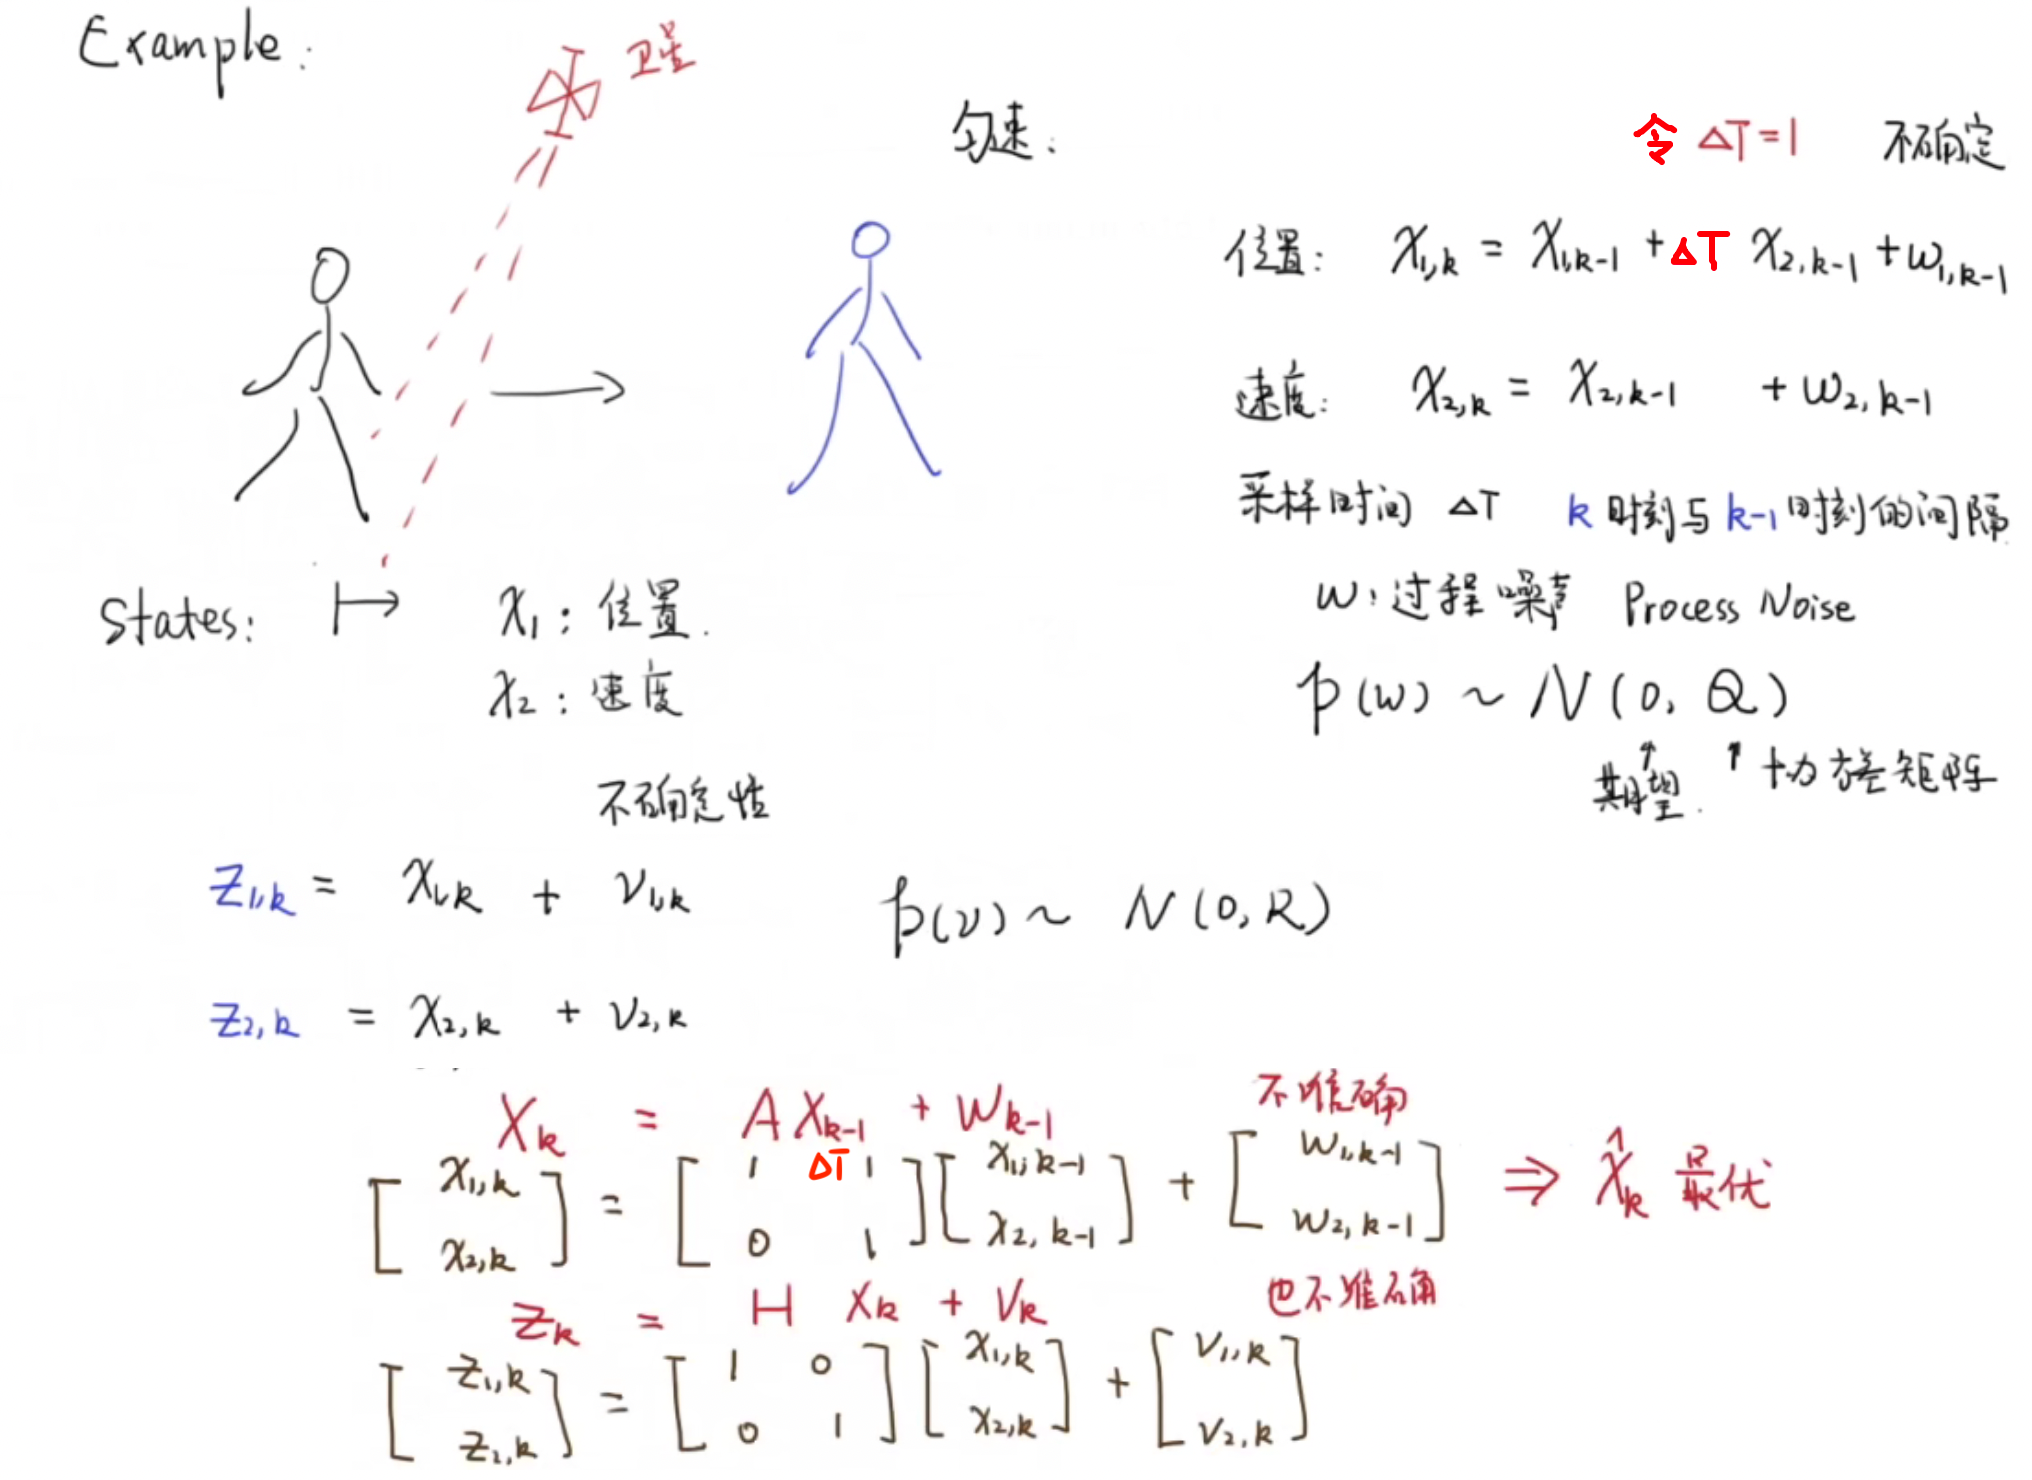 Example:
卫星
匀速:
令 ΔT=1 不确定
位置: X₁,ₖ = X₁,ₖ₋₁ + ΔT X₂,ₖ₋₁ + ω₁,ₖ₋₁
速度: X₂,ₖ = X₂,ₖ₋₁ + ω₂,ₖ₋₁
采样时间 ΔT k时刻与k-1时刻的间隔
W: 过程噪声 Process Noise
P(w) ~ N(0, Q)
期望. 协方差矩阵
States: X₁: 位置.
X₂: 速度
不确定性
Z₁,ₖ = X₁,ₖ + V₁,ₖ P(v) ~ N(0, R)
Z₂,ₖ = X₂,ₖ + V₂,ₖ
Xₖ = A Xₖ₋₁ + Wₖ₋₁ 不准确
[X₁,ₖ X₂,ₖ] = [1 ΔT 1 0 1] [X₁,ₖ₋₁ X₂,ₖ₋₁] + [W₁,ₖ₋₁ W₂,ₖ₋₁] ⇒ X̂ₖ 最优
Zₖ = H Xₖ + Vₖ 也不准确
[Z₁,ₖ Z₂,ₖ] = [1 0 0 1] [X₁,ₖ X₂,ₖ] + [V₁,ₖ V₂,ₖ]